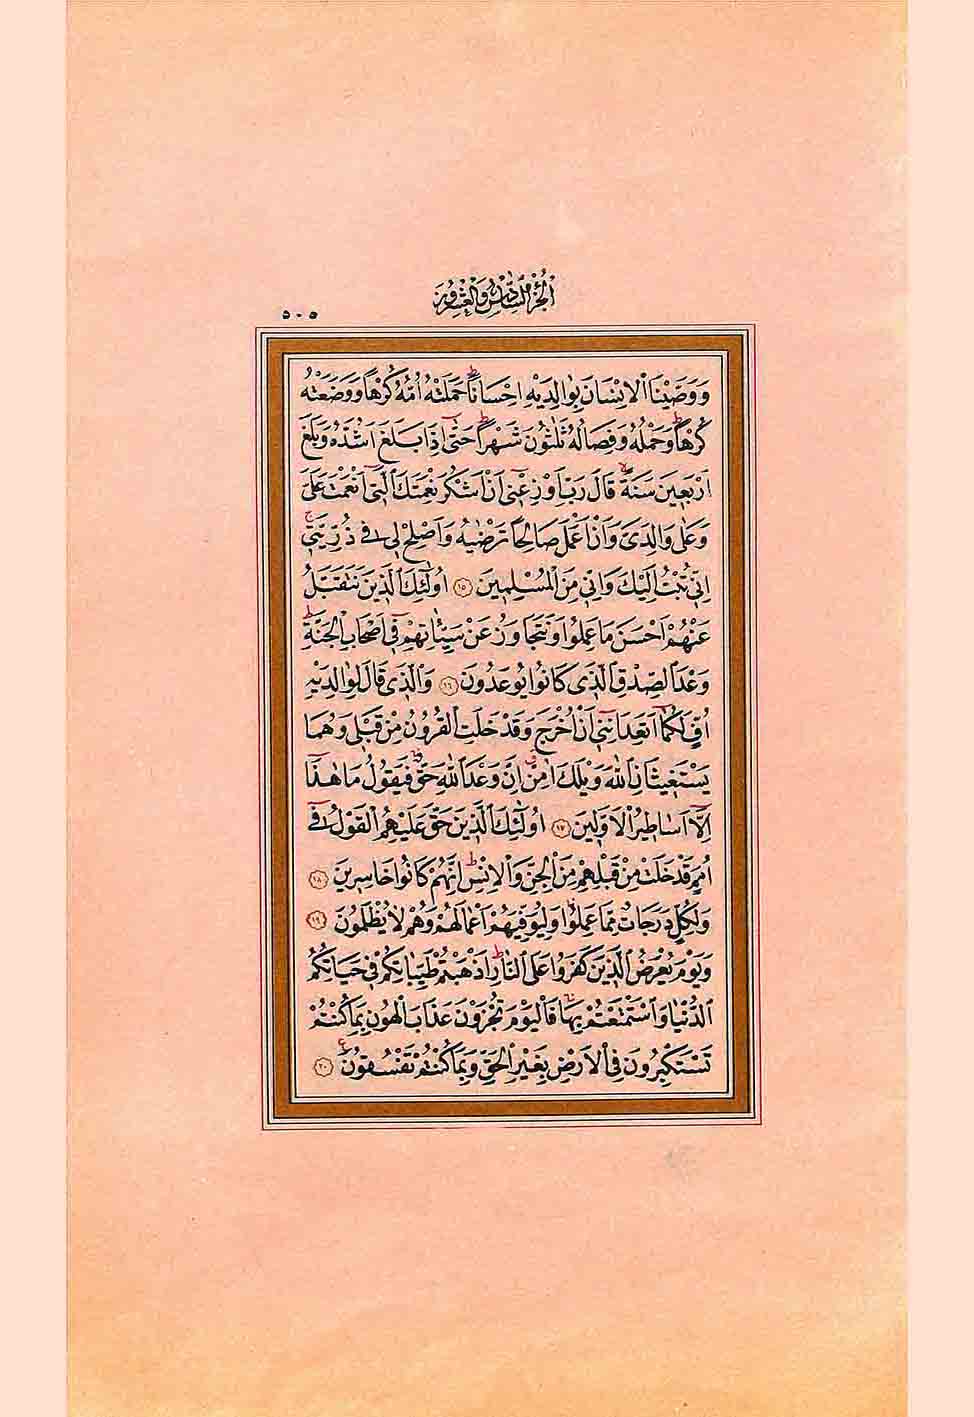 الجزء السادس والعشرون
٥٠٥
وَوَصَّيْنَا الْاِنْسَانَ بِوَالِدَيْهِ اِحْسَاناًۜ حَمَلَتْهُ اُمُّهُ كُرْهاً وَوَضَعَتْهُ
كُرْهاًۜ وَحَمْلُهُ وَفِصَالُهُ ثَلٰثُونَ شَهْراًۜ حَتّٰٓى اِذَا بَلَغَ اَشُدَّهُ وَبَلَغَ
اَرْبَع۪ينَ سَنَةًۙ قَالَ رَبِّ اَوْزِعْن۪ٓي اَنْ اَشْكُرَ نِعْمَتَكَ الَّت۪ٓي اَنْعَمْتَ عَلَيَّ
وَعَلٰى وَالِدَيَّ وَاَنْ اَعْمَلَ صَالِحاً تَرْضٰيهُ وَاَصْلِحْ ل۪ي ف۪ي ذُرِّيَّت۪يۚ
اِنّ۪ي تُبْتُ اِلَيْكَ وَاِنّ۪ي مِنَ الْمُسْلِم۪ينَ ١٥ اُو۬لٰٓئِكَ الَّذ۪ينَ نَتَقَبَّلُ
عَنْهُمْ اَحْسَنَ مَا عَمِلُوا وَنَتَجَاوَزُ عَنْ سَيِّـَٔاتِهِمْ ف۪ٓي اَصْحَابِ الْجَنَّةِۜ
وَعْدَ الصِّدْقِ الَّذ۪ي كَانُوا يُوعَدُونَ ١٦ وَالَّذ۪ي قَالَ لِوَالِدَيْهِ
اُفٍّ لَكُمَٓا اَتَعِدَانِن۪ٓي اَنْ اُخْرَجَ وَقَدْ خَلَتِ الْقُرُونُ مِنْ قَبْل۪ي وَهُمَا
يَسْتَغ۪يثَانِ اللّٰهَ وَيْلَكَ اٰمِنْۗ اِنَّ وَعْدَ اللّٰهِ حَقٌّۚ فَيَقُولُ مَا هٰذَٓا
اِلَّٓا اَسَاط۪يرُ الْاَوَّل۪ينَ ١٧ اُو۬لٰٓئِكَ الَّذ۪ينَ حَقَّ عَلَيْهِمُ الْقَوْلُ ف۪ٓي
اُمَمٍ قَدْ خَلَتْ مِنْ قَبْلِهِمْ مِنَ الْجِنِّ وَالْاِنْسِۜ اِنَّهُمْ كَانُوا خَاسِر۪ينَ ١٨
وَلِكُلٍّ دَرَجَاتٌ مِمَّا عَمِلُواۚ وَلِيُوَفِّيَهُمْ اَعْمَالَهُمْ وَهُمْ لَا يُظْلَمُونَ ١٩
وَيَوْمَ يُعْرَضُ الَّذ۪ينَ كَفَرُوا عَلَى النَّارِۜ اَذْهَبْتُمْ طَيِّبَاتِكُمْ ف۪ي حَيَاتِكُمُ
الدُّنْيَا وَاسْتَمْتَعْتُمْ بِهَاۚ فَالْيَوْمَ تُجْزَوْنَ عَذَابَ الْهُونِ بِمَا كُنْتُمْ
تَسْتَكْبِرُونَ فِي الْاَرْضِ بِغَيْرِ الْحَقِّ وَبِمَا كُنْتُمْ تَفْسُقُونَ۟ ٢٠